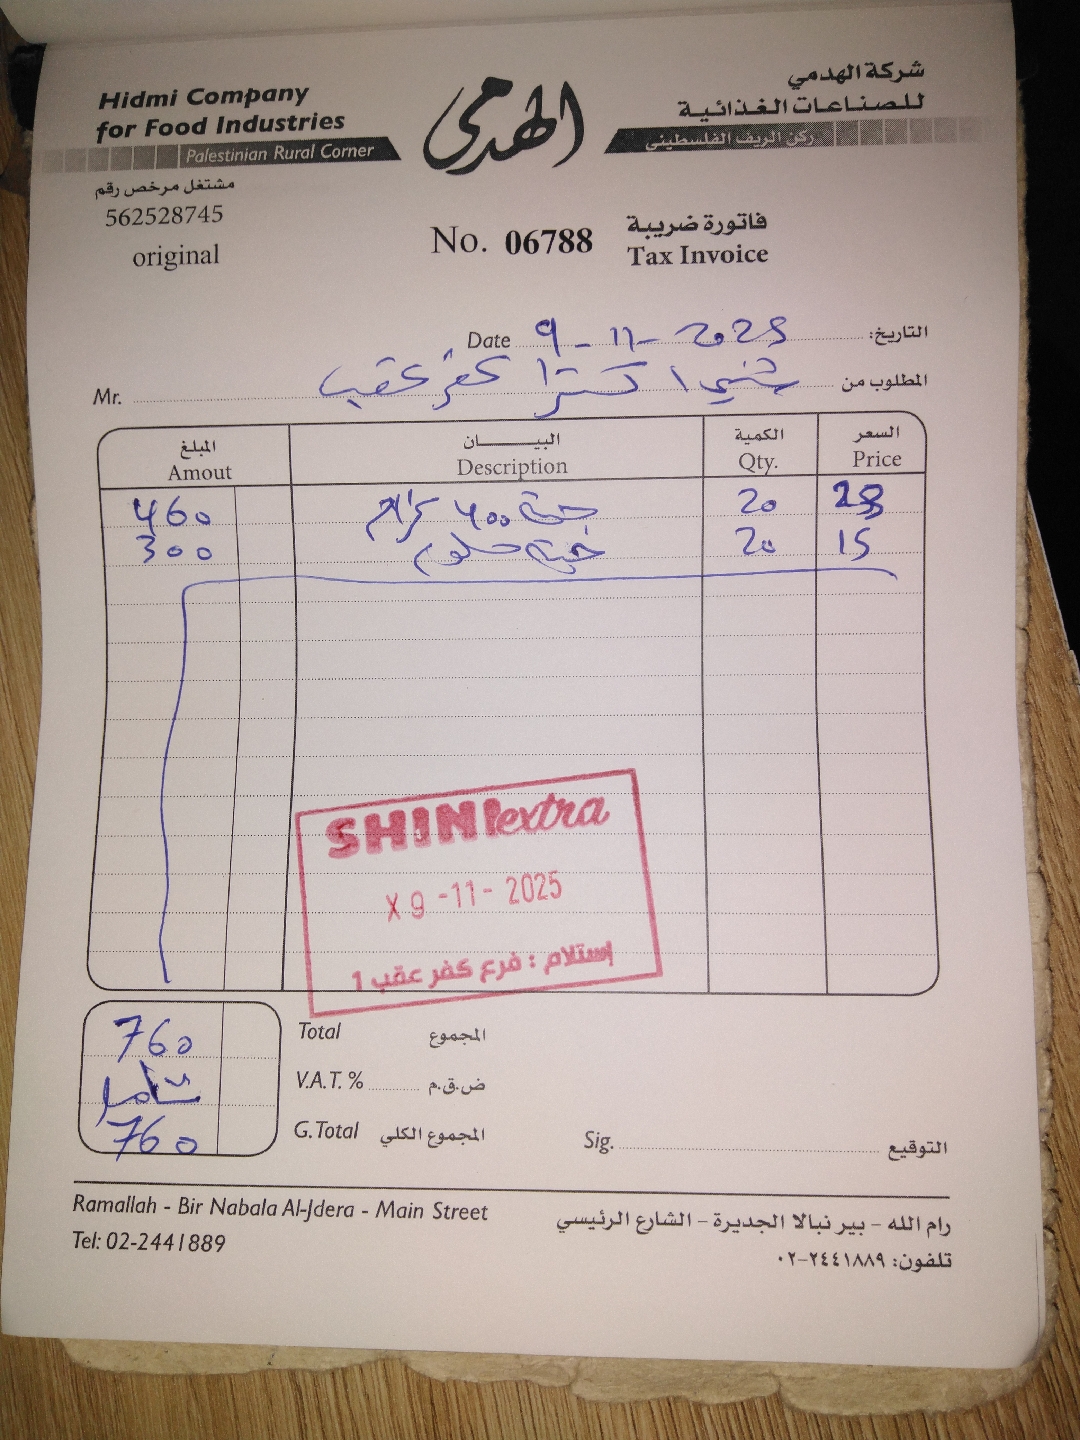 Hidmi Company
for Food Industries
Palestinian Rural Corner
الهدمي
شركة الهدمي
للصناعات الغذائية
ركن الريف الفلسطيني
مشتغل مرخص رقم
562528745
original
No. 06788
فاتورة ضريبة
Tax Invoice
Date 9-11-2025 التاريخ:
Mr. شني اكسترا كفر عقب المطلوب من
المبلغ البيــــــان الكمية السعر
Amout Description Qty. Price
460 جبنة 400 غرام 20 23
300 20 15
SHINI extra
X 9 -11- 2025
إستلام : فرع كفر عقب 1
760 Total المجموع
شامل V.A.T. % ض.ق.م
760 G.Total المجموع الكلي
Sig. التوقيع
Ramallah - Bir Nabala Al-Jdera - Main Street
Tel: 02-2441889
رام الله - بير نبالا الجديرة - الشارع الرئيسي
تلفون: ٢٤٤١٨٨٩-٠٢